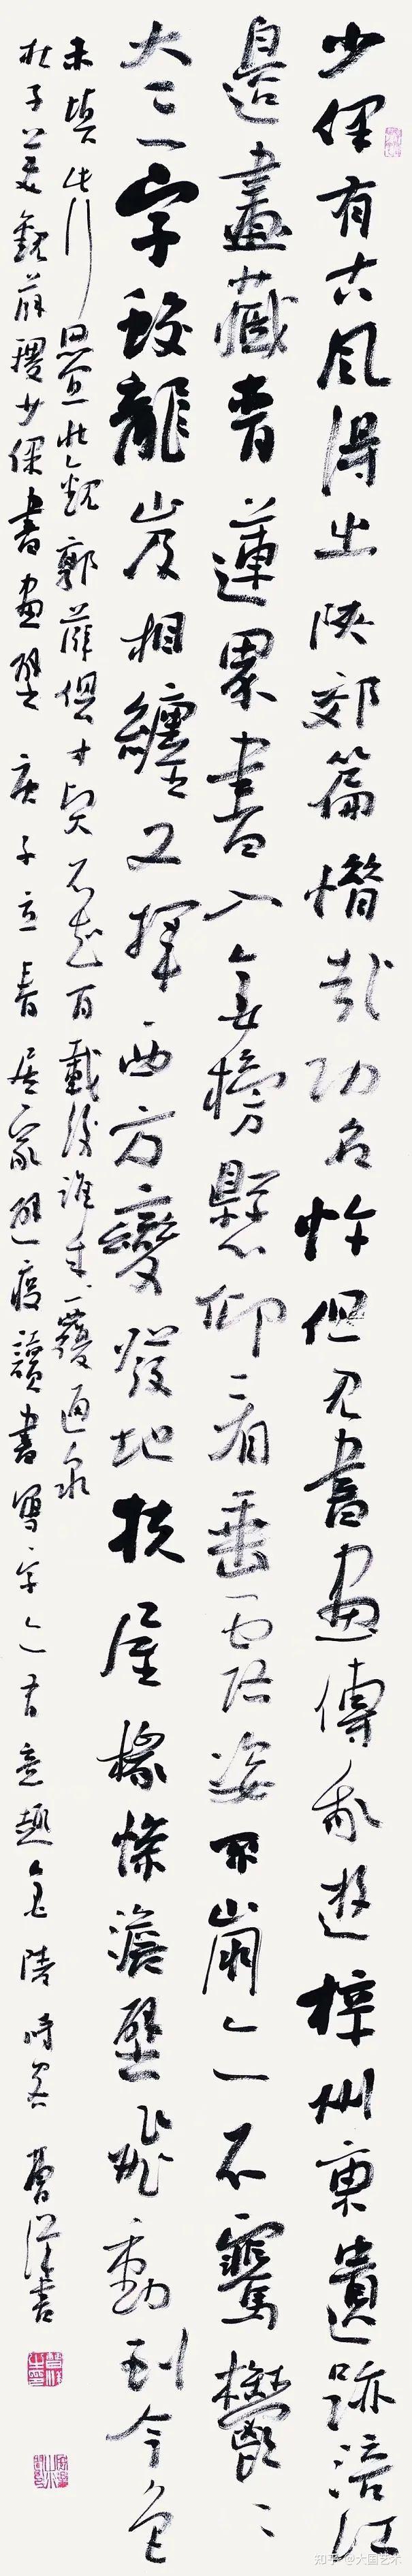 少保有古風得之陝郊篇惜哉功名忤但見書畫傳我遊梓州東遺跡涪江
邊畫藏青蓮界書入金榜懸仰看垂露姿不崩亦不騫鬱〻
大三字蛟龍岌相纏又揮西方變發地扶屋椽慘澹壁飛動到今色
未填此行疊壯觀郭薛俱才賢不知百載後誰來復通泉
杜子美觀薛稷少保書畫壁 庚子立春居家避疫讀書寫字亦有意趣金陵時客 曹書
知乎 @大国艺术